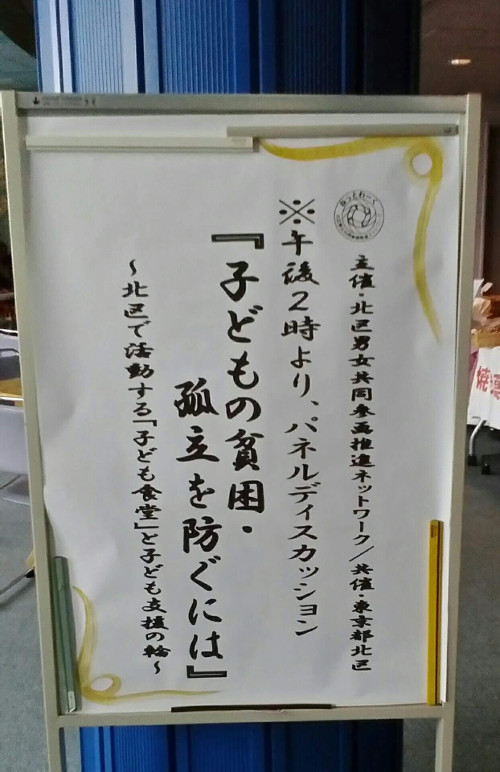 ねっとわーく
主催・北区男女共同参画推進ネットワーク/共催・東京都北区
※午後2時より、パネルディスカッション
『子どもの貧困・
孤立を防ぐには』
~北区で活動する「子ども食堂」と子ども支援の輪~